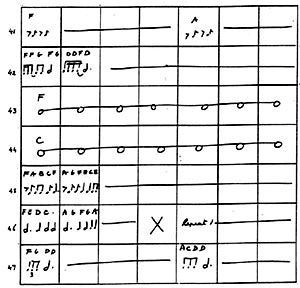 41 F A
42 FFG FG DDFD
43 F
44 C
45 FABCF AGFDCF
46 FCDC AGFGA X Repeat 1
47 FG DD ACDD